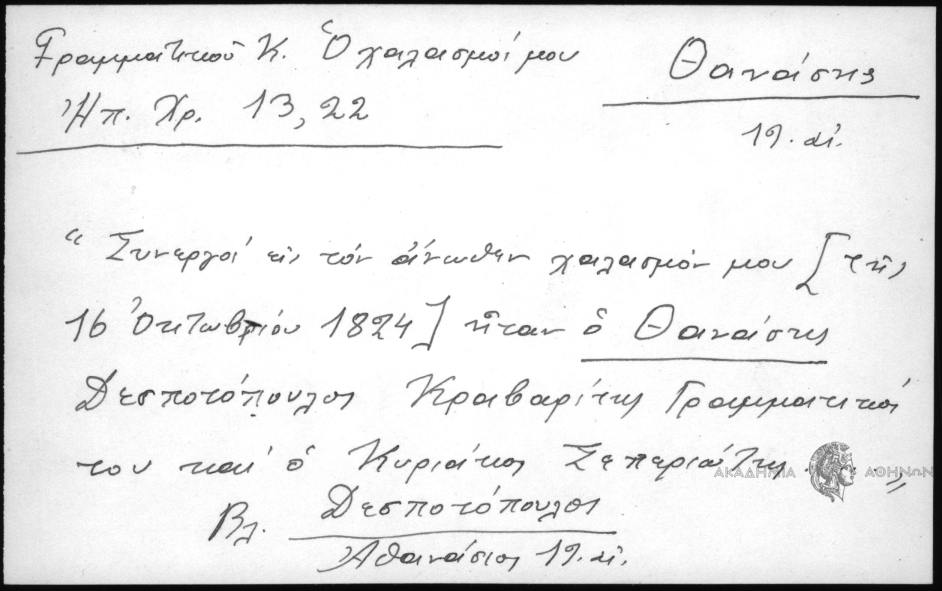 Γραμματικοῦ Κ. Ὁ χαλασμοί μου
Ἠπ. Χρ. 13, 22
Θανάσης
19. αἰ.
“ Συνεργοί εἰς τόν ἄνωθεν χαλασμόν μου [τῆς
16 Ὀκτωβρίου 1824] ἦταν ὁ Θανάσης
Δεσποτόπουλος Κραβαρίτης Γραμματικός
του καί ὁ Κυριάκος ..... „
ΑΚΑΔΗΜΙΑ ΑΘΗΝΩΝ
Βλ. Δεσποτόπουλος
Ἀθανάσιος 19. αἰ.